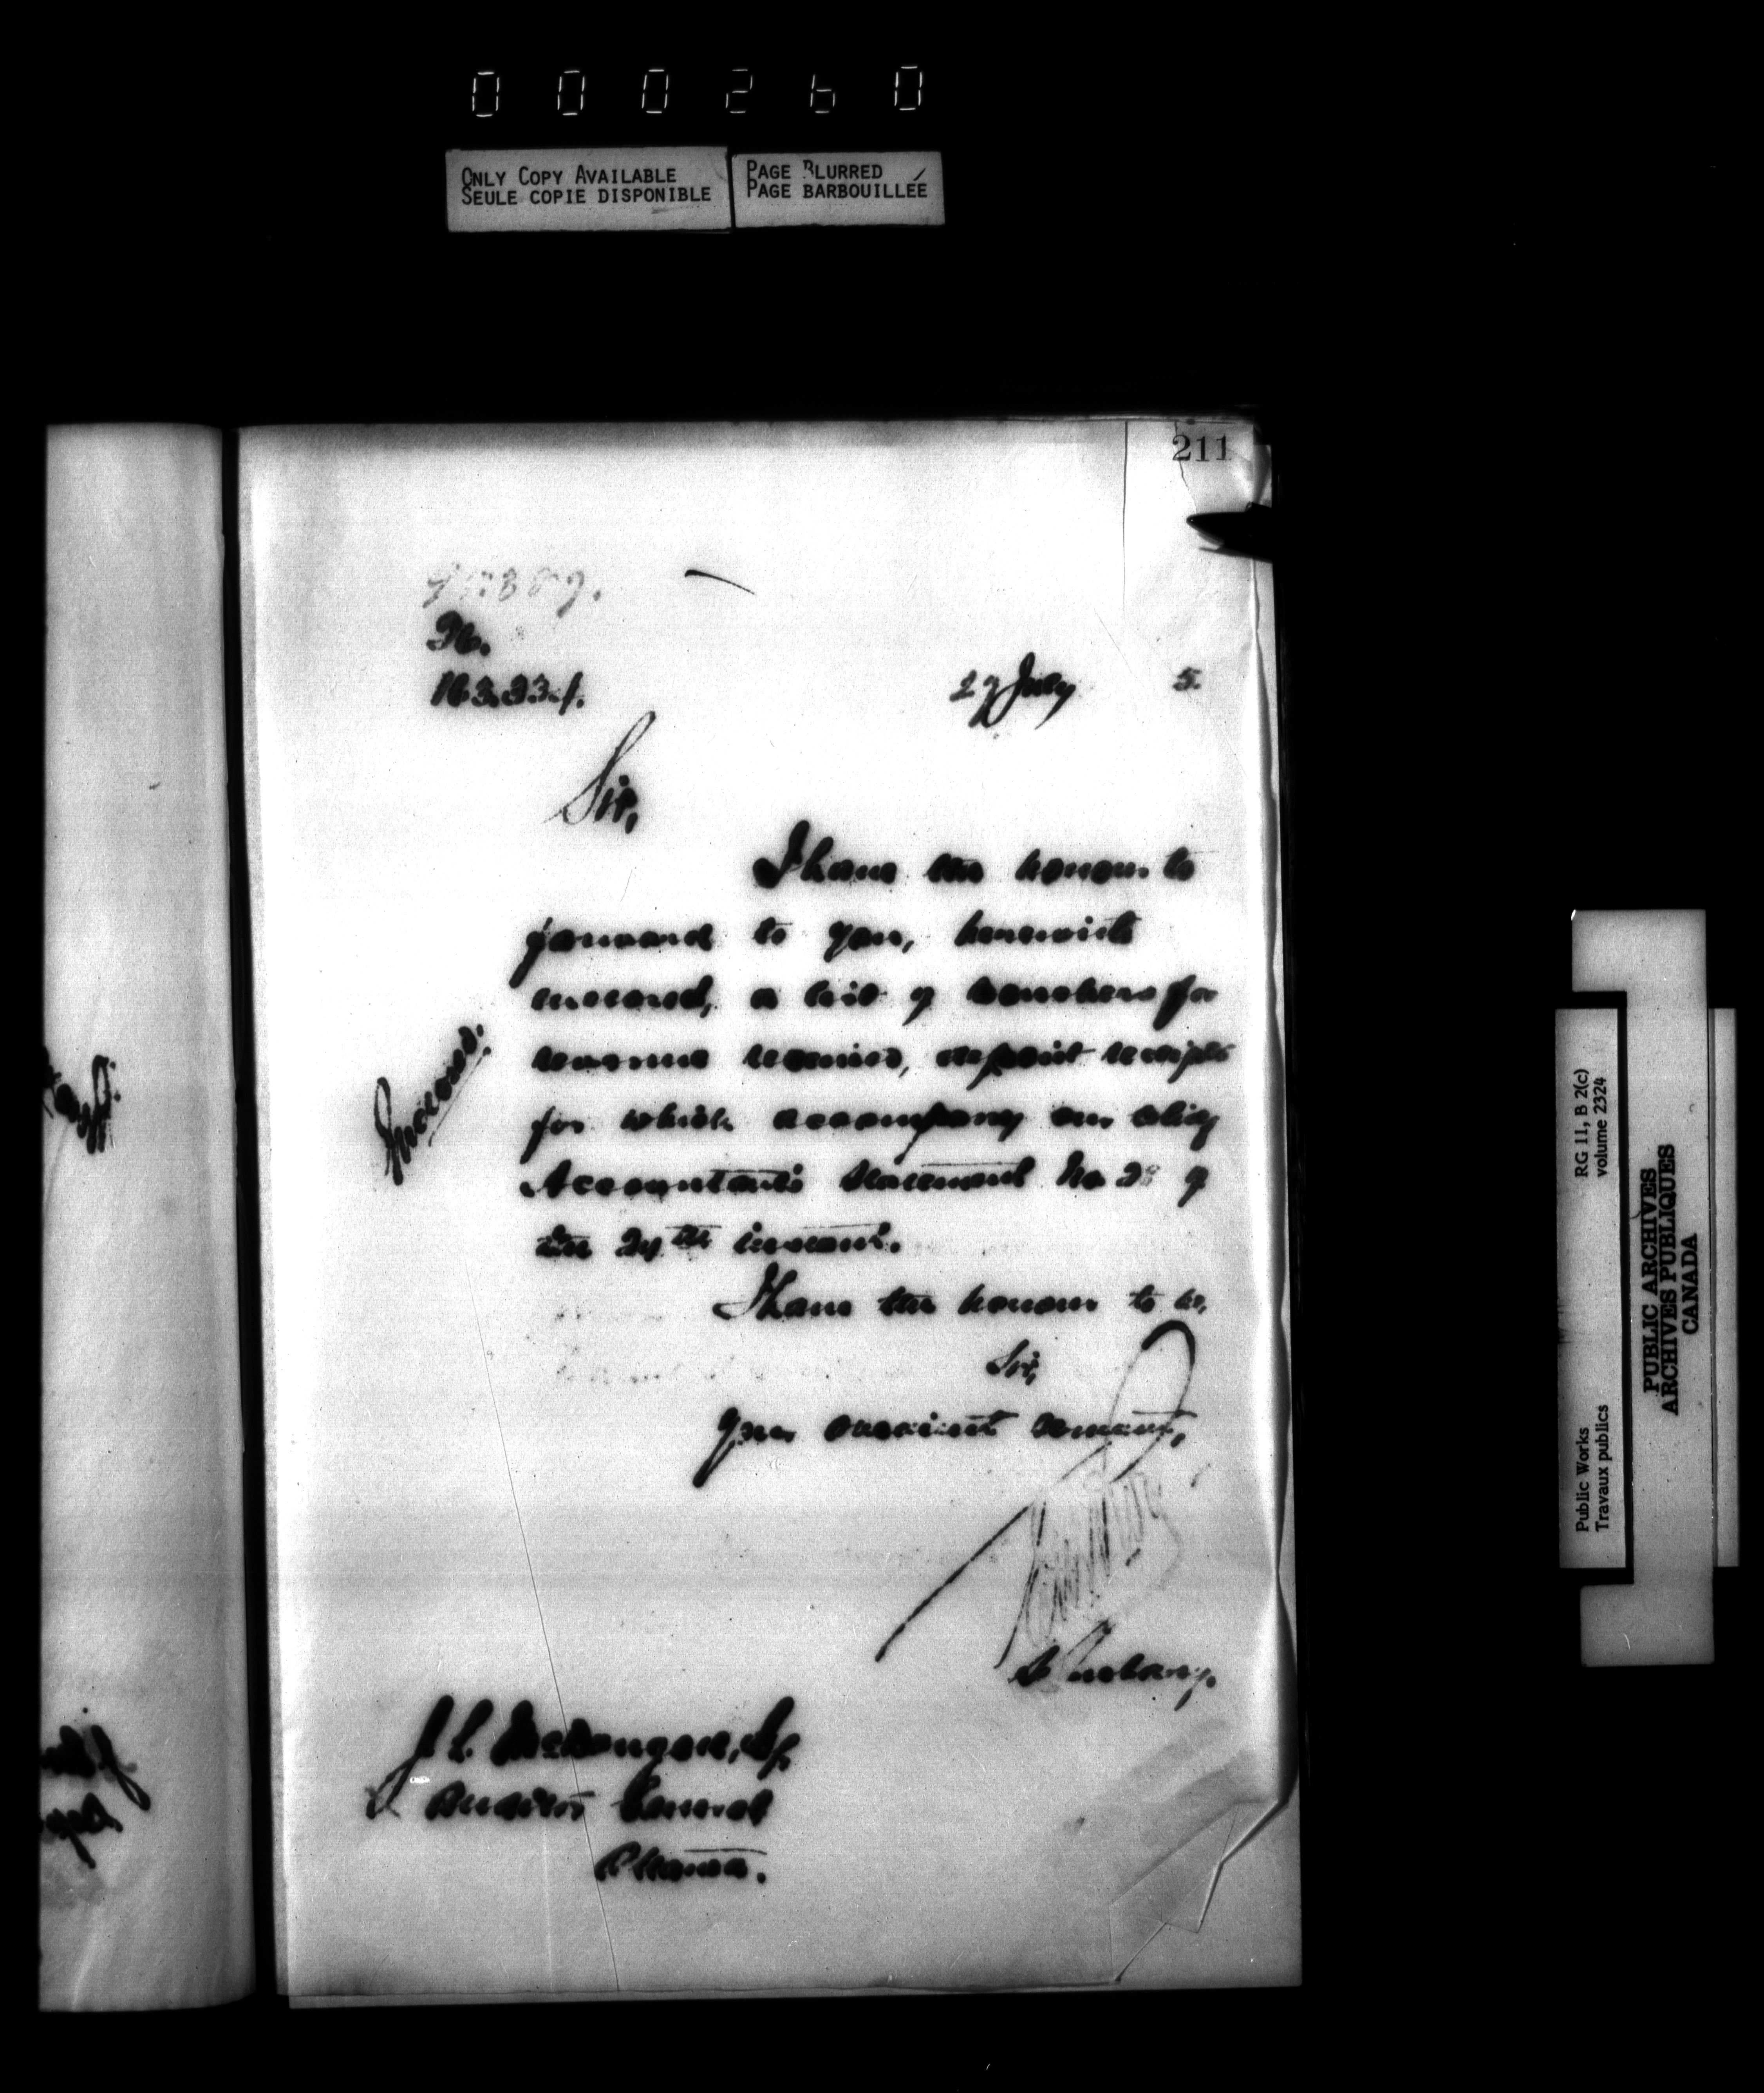 000260
ONLY COPY AVAILABLE
SEULE COPIE DISPONIBLE
PAGE BLURRED
PAGE BARBOUILLÉE
211
27 July 5.
Sir,
I have the honour to
forward to you, herewith
enclosed, a list of vouchers for
revenue received, deposit receipts
for which accompany our
Accountant's Statement No. 2 of
the 27th instant.
I have the honour to be,
Sir,
Your obedient servant,
Secretary.
J. L. McDougall, Esq.
Auditor General
Ottawa.
RG 11, B 2(c)
volume 2324
Public Works
Travaux publics
PUBLIC ARCHIVES
ARCHIVES PUBLIQUES
CANADA